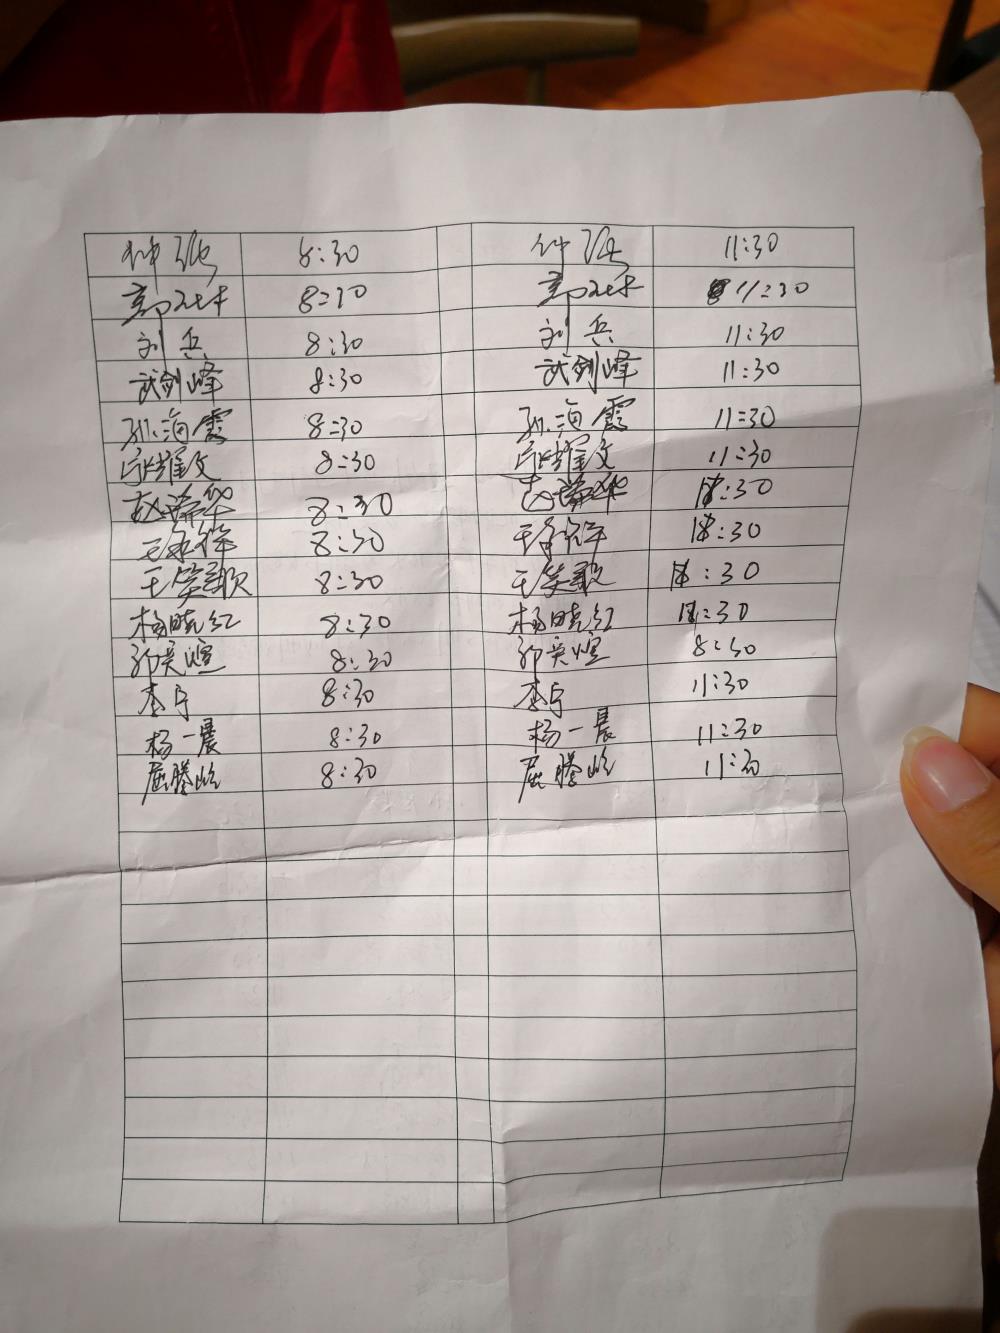 钟强 8:30 钟强 11:30
郭 8:30 郭 11:30
刘兵 8:30 刘兵 11:30
武剑峰 8:30 武剑峰 11:30
孙海霞 8:30 孙海霞 11:30
耀文 8:30 耀文 11:30
赵瑞华 8:30 赵瑞华 11:30
王 8:30 王 11:30
王笑歌 8:30 王笑歌 11:30
杨晓红 8:30 杨晓红 11:30
郭美煊 8:30 郭美煊 8:30
李宁 8:30 李宁 11:30
杨一晨 8:30 杨一晨 11:30
屈腾岭 8:30 屈腾岭 11:30